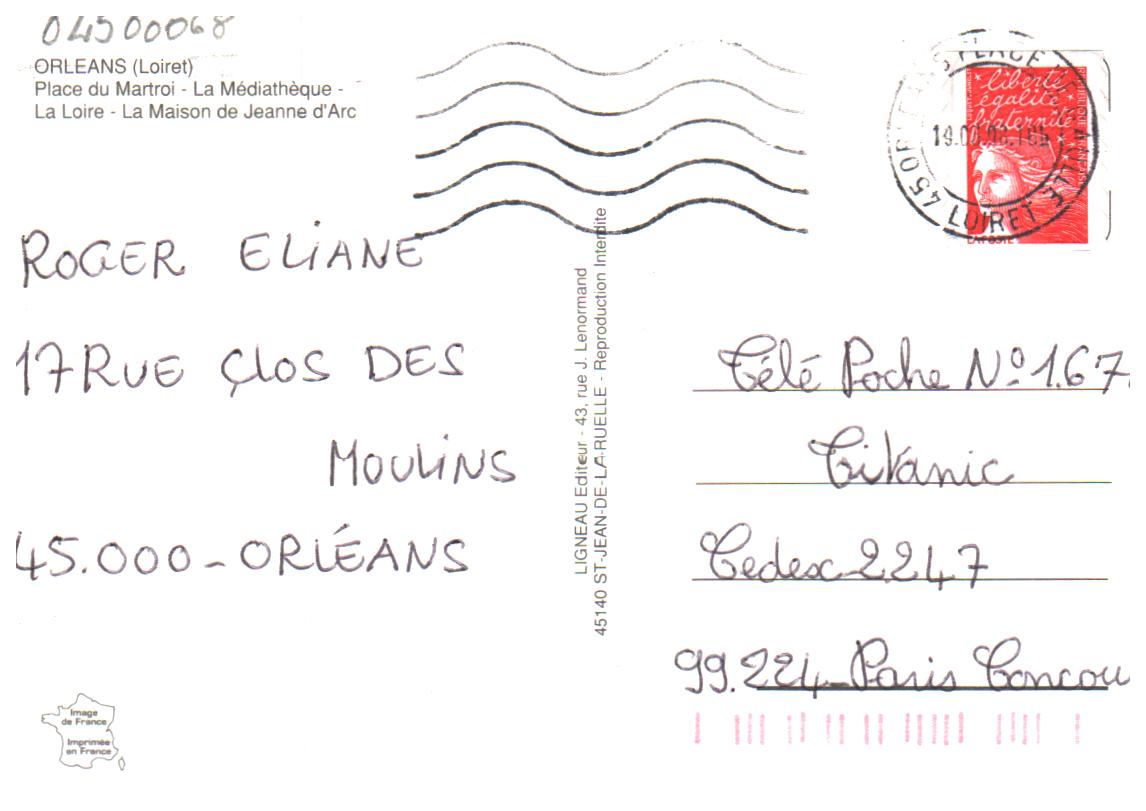 04500068
ORLEANS (Loiret)
Place du Martroi - La Médiathèque -
La Loire - La Maison de Jeanne d'Arc
liberté
égalité
fraternité
LA POSTE
45 ORLEANS PLACE DE GAULLE
LOIRET
ROGER ELIANE
17 RUE CLOS DES
MOULINS
45.000 - ORLÉANS
LIGNEAU Editeur - 43, rue J. Lenormand
45140 ST-JEAN-DE-LA-RUELLE - Reproduction Interdite
Télé Poche Nº 1.67
Titanic
Cedex 2247
99.224 - Paris Concou
Image
de France
Imprimée
en France